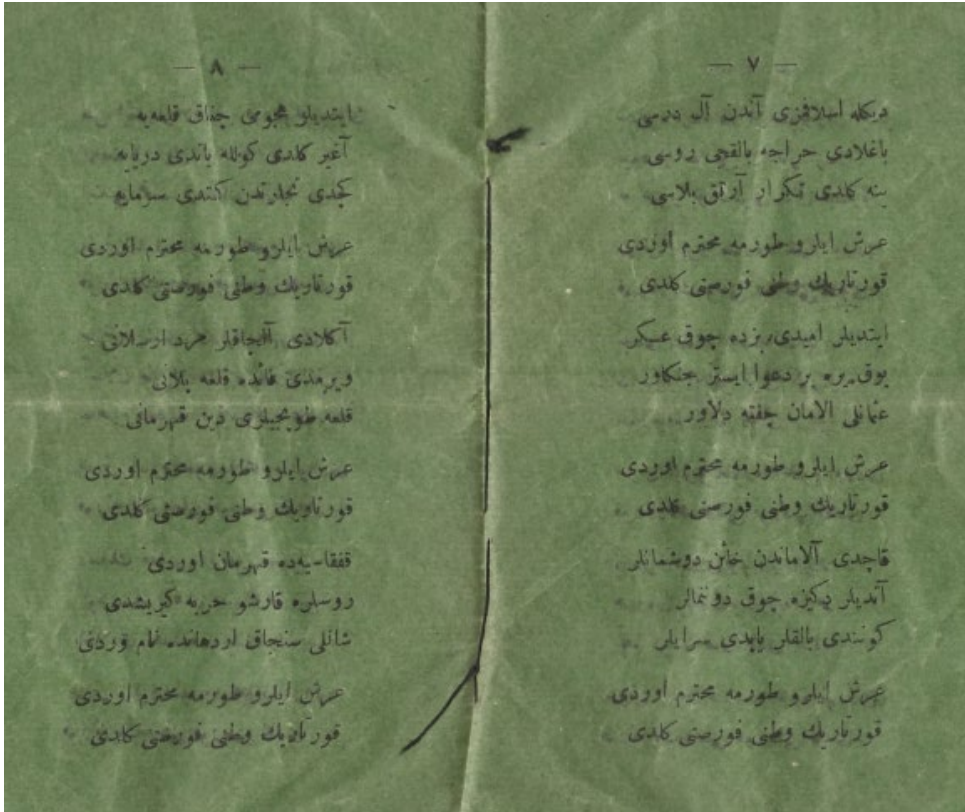 — ٧ —
دیكله اسلافكزی آندن آل درسی
باغلادی خراجه بالقجی روسی
ینه كلدی تكرار آرتق بلاسی
عرش ایلرو طورمه محترم اوردی
قورتاریك وطنی فورصتی كلدی
ایتدیلر امیدی، بزده چوق عسكر
یوق یره بر دعوا ایستر جنكاور
عثمانلی الامان چفته دلاور
عرش ایلرو طورمه محترم اوردی
قورتاریك وطنی فورصتی كلدی
قاچدی آلاماندن خائن دوشمانلر
آتدیلر دكیزه چوق دوننمالر
كوننندی بالقلر یاپدی سرایلر
عرش ایلرو طورمه محترم اوردی
قورتاریك وطنی فورصتی كلدی
— ٨ —
ایتدیلر هجومی چناق قلعه‌یه
آغیر كلدی كولله یاتدی دریایه
كچدی تجارتدن كتدی سرمایه
عرش ایلرو طورمه محترم اوردی
قورتاریك وطنی فورصتی كلدی
آكلادی آلچاقلر مرد ارسلانی
ویرمدی فائده قلعه پلانی
قلعه طوپجیلری دین قهرمانی
عرش ایلرو طورمه محترم اوردی
قورتاریك وطنی فورصتی كلدی
قفقاسیه‌ده قهرمان اوردی
روسلره قارشو حربه كیریشدی
شانلی سنجاق اردهانده نام ویردی
عرش ایلرو طورمه محترم اوردی
قورتاریك وطنی فورصتی كلدی